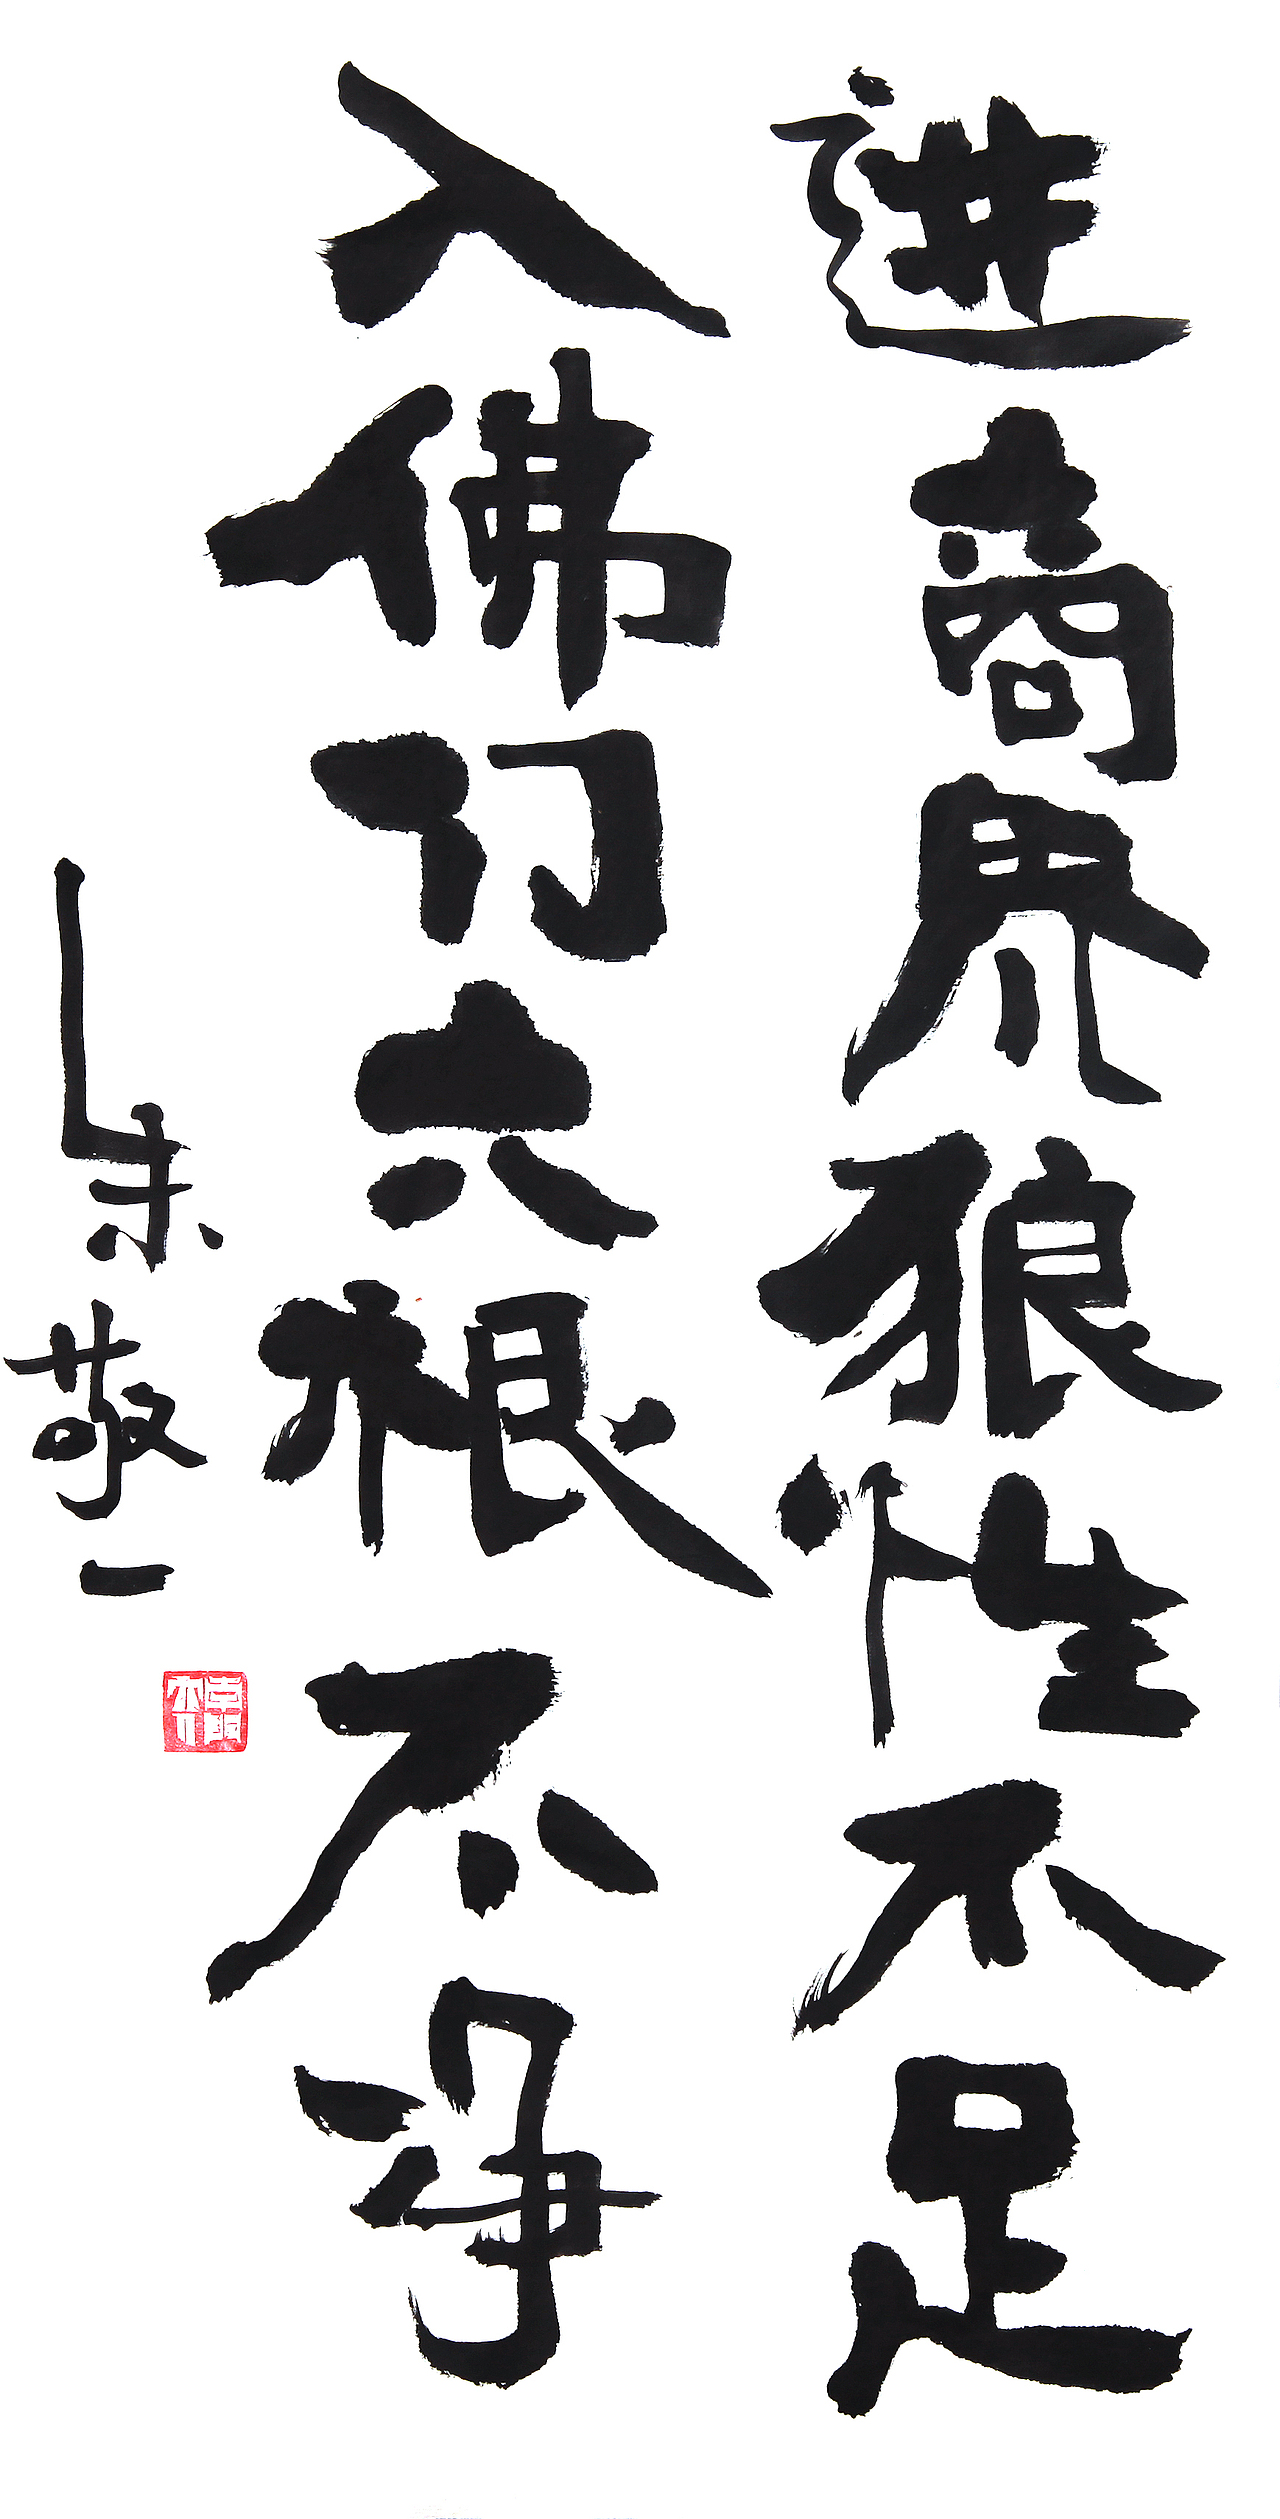 进商界狼性不足
入佛门六根不净
朱敬一